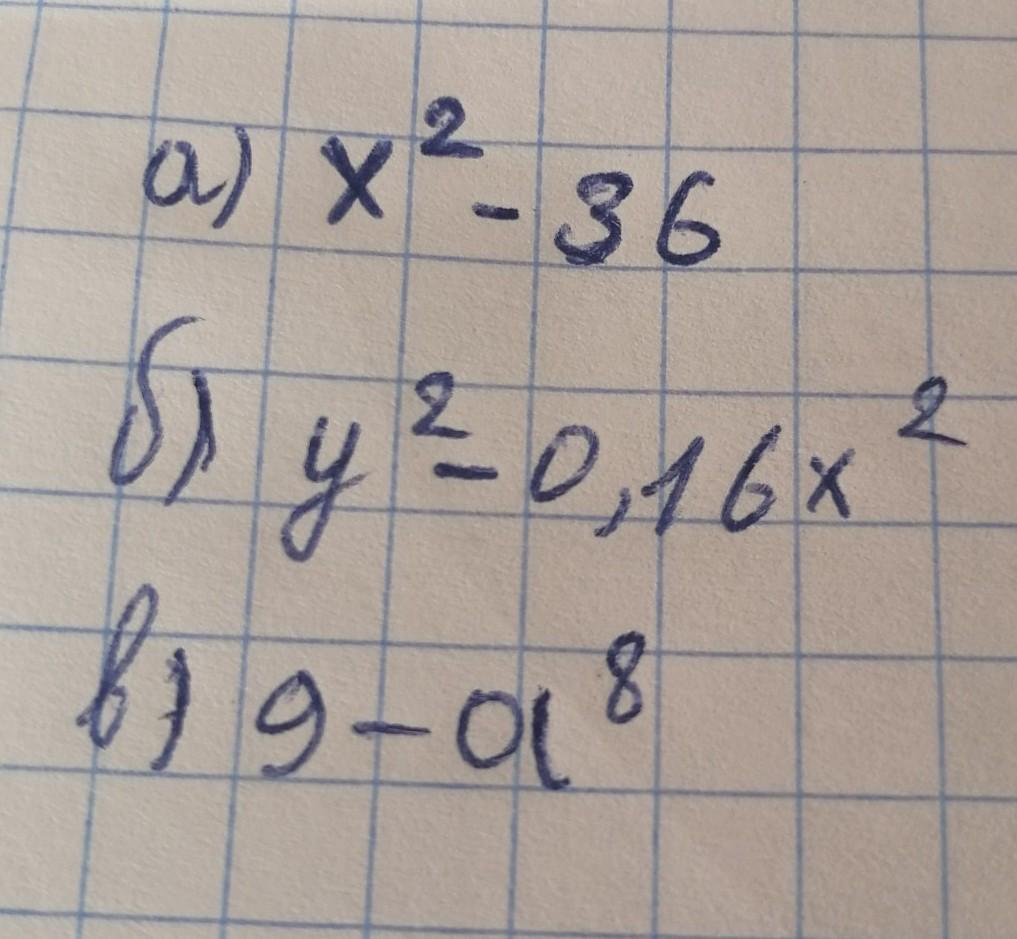 а) x² - 36
б) y² - 0,16x²
в) 9 - a⁸